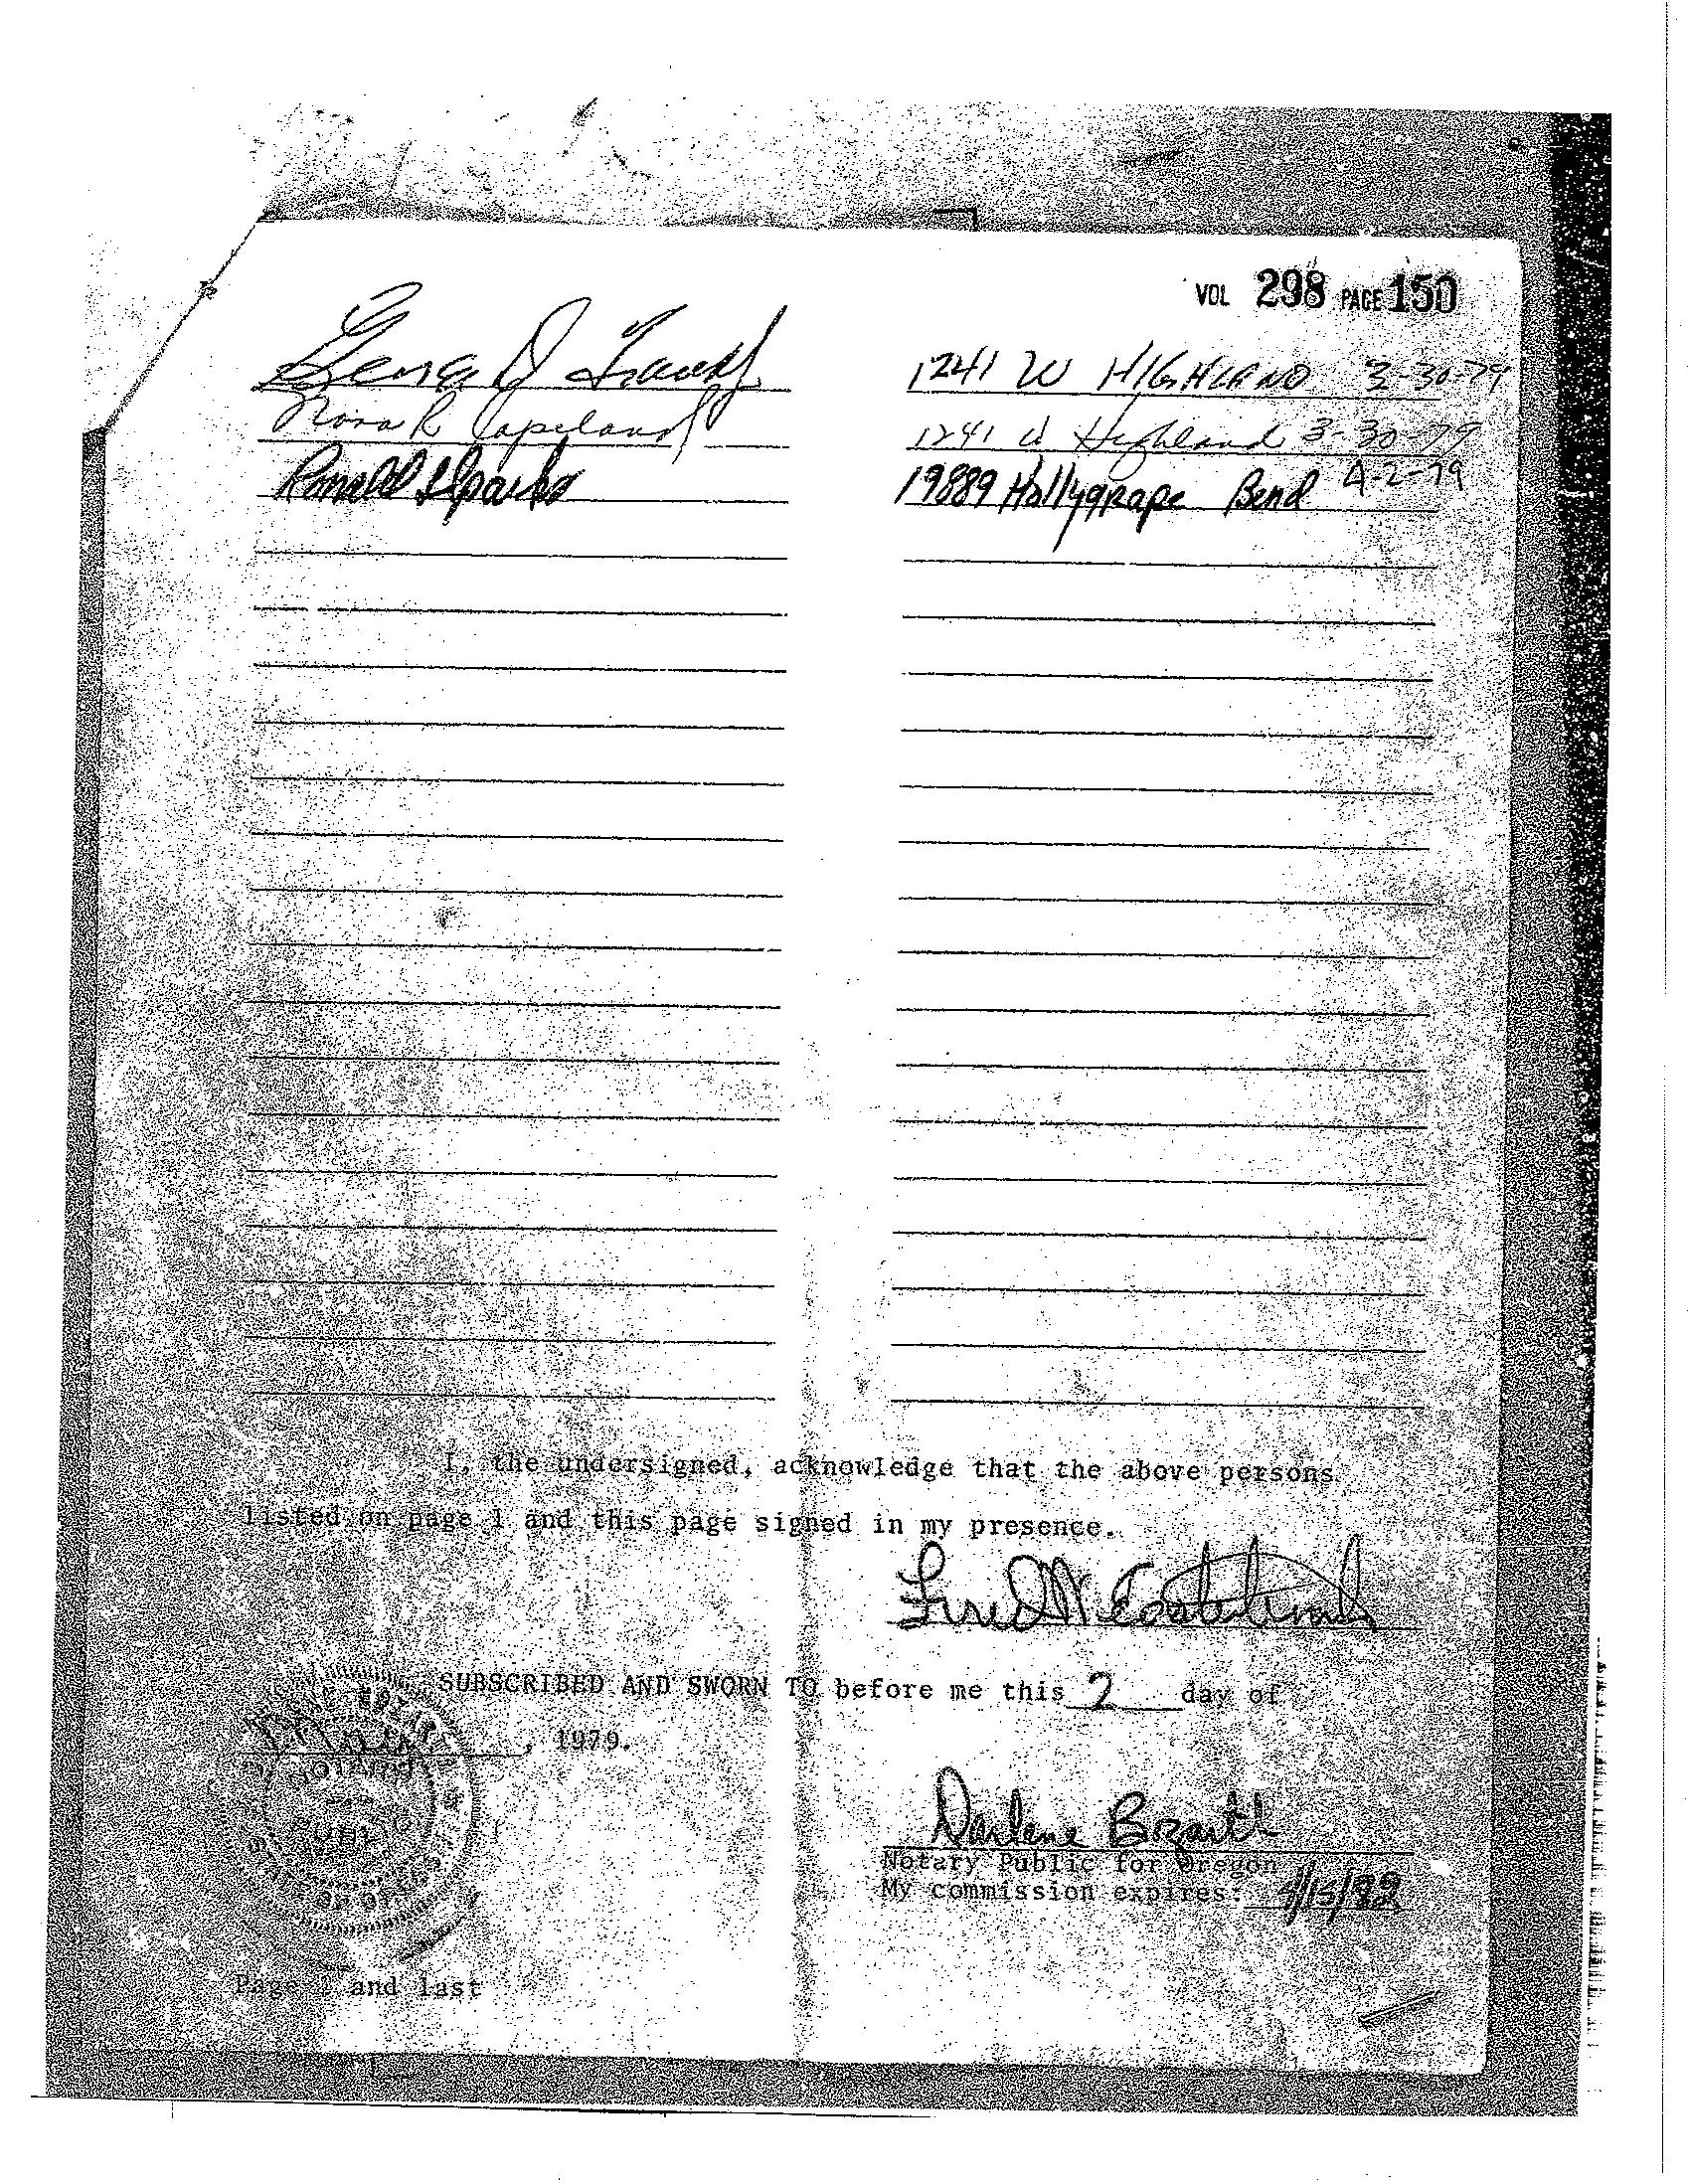 VOL 298 PAGE 150
1241 W HIGHLAND 3-30-79
Nora R Copeland 1241 W Highland 3-30-79
Ronald Sparks 19889 Hollygrape Bend 4-2-79
I, the undersigned, acknowledge that the above persons
listed on page 1 and this page signed in my presence.
SUBSCRIBED AND SWORN TO before me this 2 day of
, 1979.
Darlene Bozarth
Notary Public for Oregon
My commission expires: /15/82
Page and last